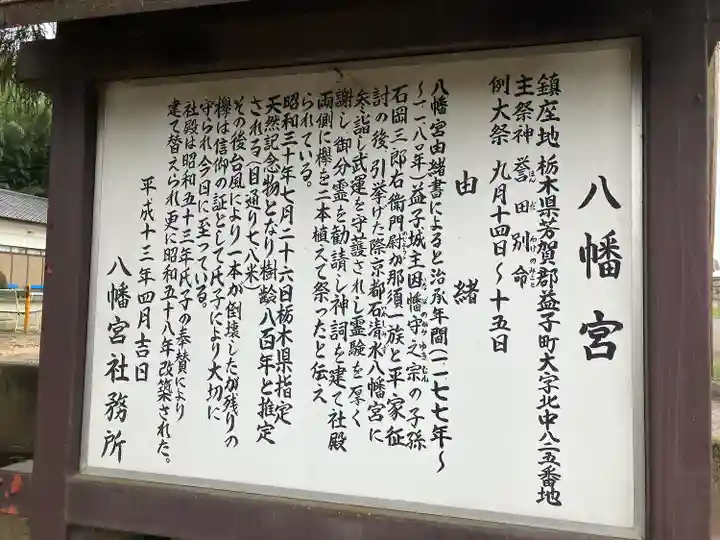 八幡宮
鎮座地 栃木県芳賀郡益子町大字北中八二五番地
主祭神 誉田別命
例大祭 九月十四日～十五日
由緒
八幡宮由緒書によると治承年間(一一七七年～
～一一八〇年)益子城主因幡守之宗の子孫
石岡三郎右衛門尉が那須一族と平家征
討の後、引挙げた際京都石清水八幡宮に
参詣し武運を守護されし霊験を厚く
謝し御分霊を勧請し神詞を建て社殿
両側に欅を二本植えて祭ったと伝え
られている。
昭和三十年七月二十六日栃木県指定
天然記念物となり樹齢八百年と推定
される(目通り七、八米)
その後台風により一本が倒壊したが残りの
欅は信仰の証として氏子により大切に
守られ今日に至っている。
社殿は昭和五十三年氏子の奉賛により
建て替えられ更に昭和五十八年改築された。
平成十三年四月吉日
八幡宮社務所